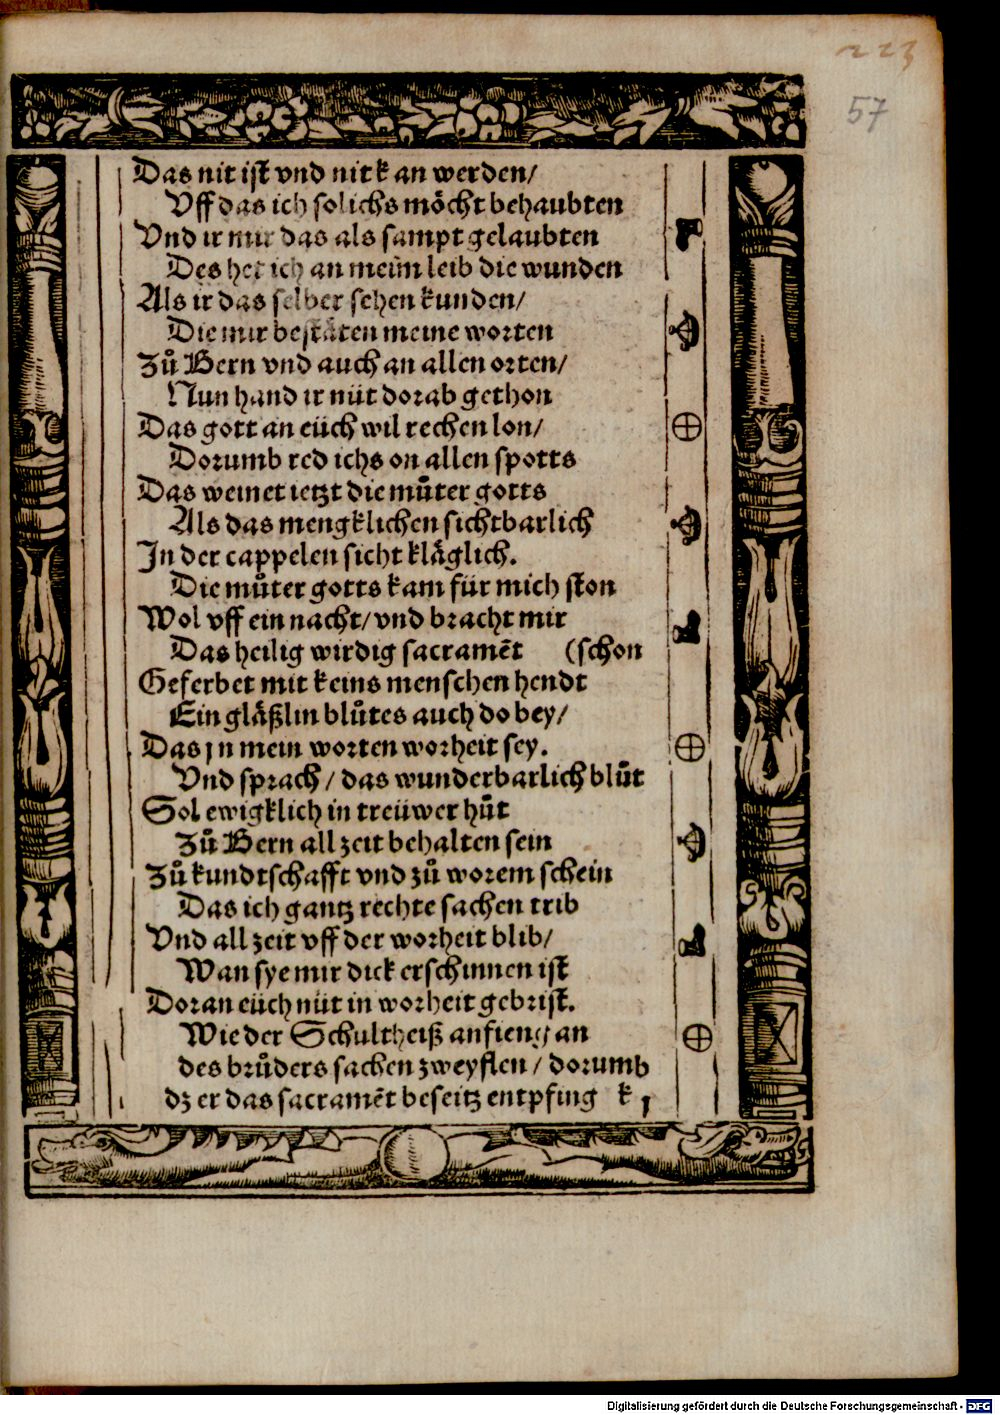 223
57
Das nit ist vnd nit kan werden/
Vff das ich solichs möcht behaubten
Vnd ir nur das als sampt gelaubten
Des het ich an meim leib die wunden
Als ir das selber sehen kunden/
Die mir bestäten meine worten
Zů Bern vnd auch an allen orten/
Nun hand ir nüt dorab gethon
Das gott an eüch wil rechen lon/
Dorumb red ichs on allen spotts
Das weinet ietzt die můter gotts
Als das mengklichen sichtbarlich
In der cappelen sicht kläglich.
Die můter gotts kam für mich ston
Wol vff ein nacht/ vnd bracht mir
Das heilig wirdig sacramēt (schon
Geferbet mit keins menschen hendt
Ein gläßlin blůtes auch do bey/
Das jn mein worten worheit sey.
Vnd sprach/ das wunderbarlich blůt
Sol ewigklich in treüwer hůt
Zů Bern all zeit behalten sein
Zů kundtschafft vnd zů worem schein
Das ich gantz rechte sachen trib
Vnd all zeit vff der worheit blib/
Wan sye mir dick erschinnen ist
Doran eüch nüt in worheit gebrist.
Wie der Schultheiß anfieng an
des brůders sachen zweyflen/ dorumb
dz er das sacramēt beseitz entpfing k j
Digitalisierung gefördert durch die Deutsche Forschungsgemeinschaft - DFG